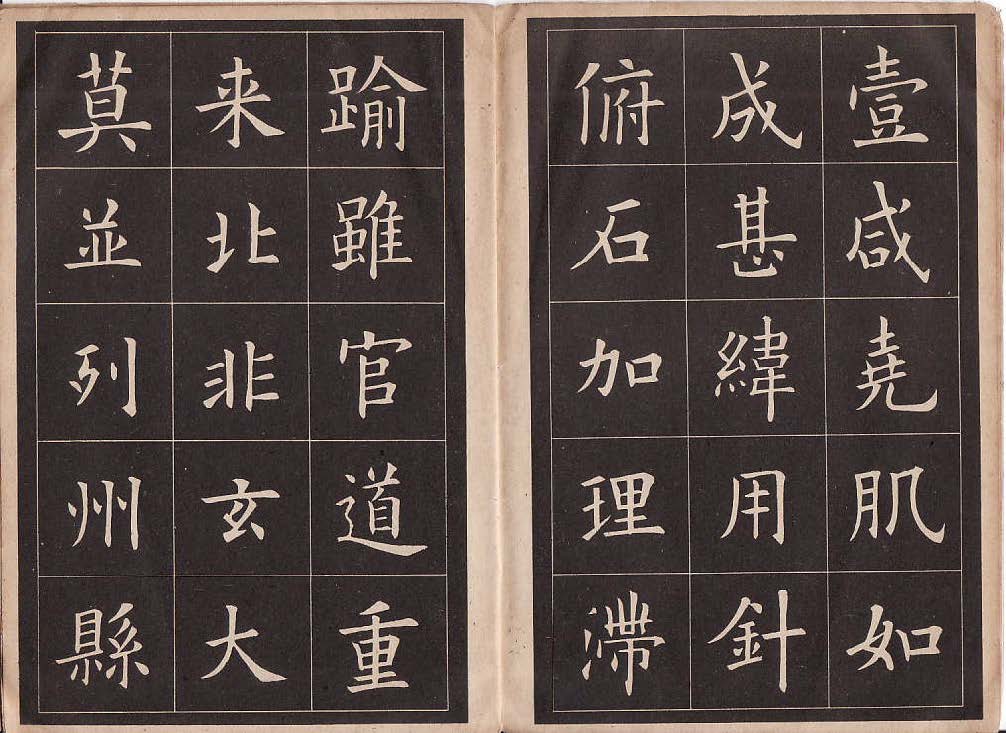 壹咸堯肌如
成甚緯用針
俯石加理滯
踰雖官道重
来北非玄大
莫並列州縣